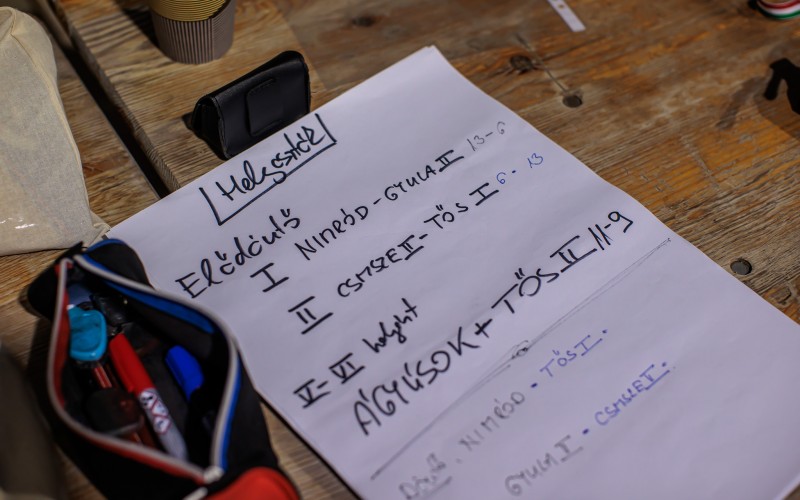 Helyosztók
Elődöntő
I NIMRÓD - GYULA II 13-6
II CSMSZE II - TŐS I 6-13
V-VI helyért
ÁGYÚSOK + TŐS II 11-9
NIMRÓD - TŐS I.
GYULA I - CSMSZE I.